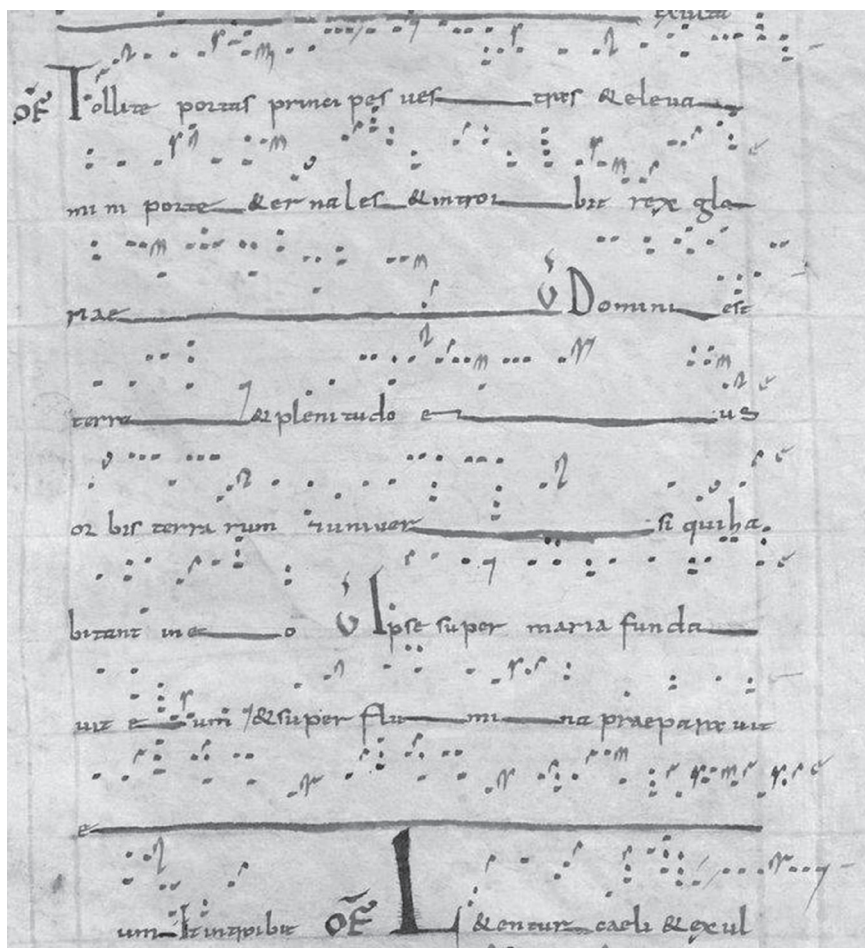 OF Tollite portas principes ves tras & eleva
mini porte & ernales & introi bit rex glo
riae V Domini est
terra & plenitudo e ius
orbis terra rum & univer si qui ha
bitant in e o V Ipse super maria funda
vit e um & super flu mi na praepara vit
e
um Et introibit OF L & entur caeli & exul